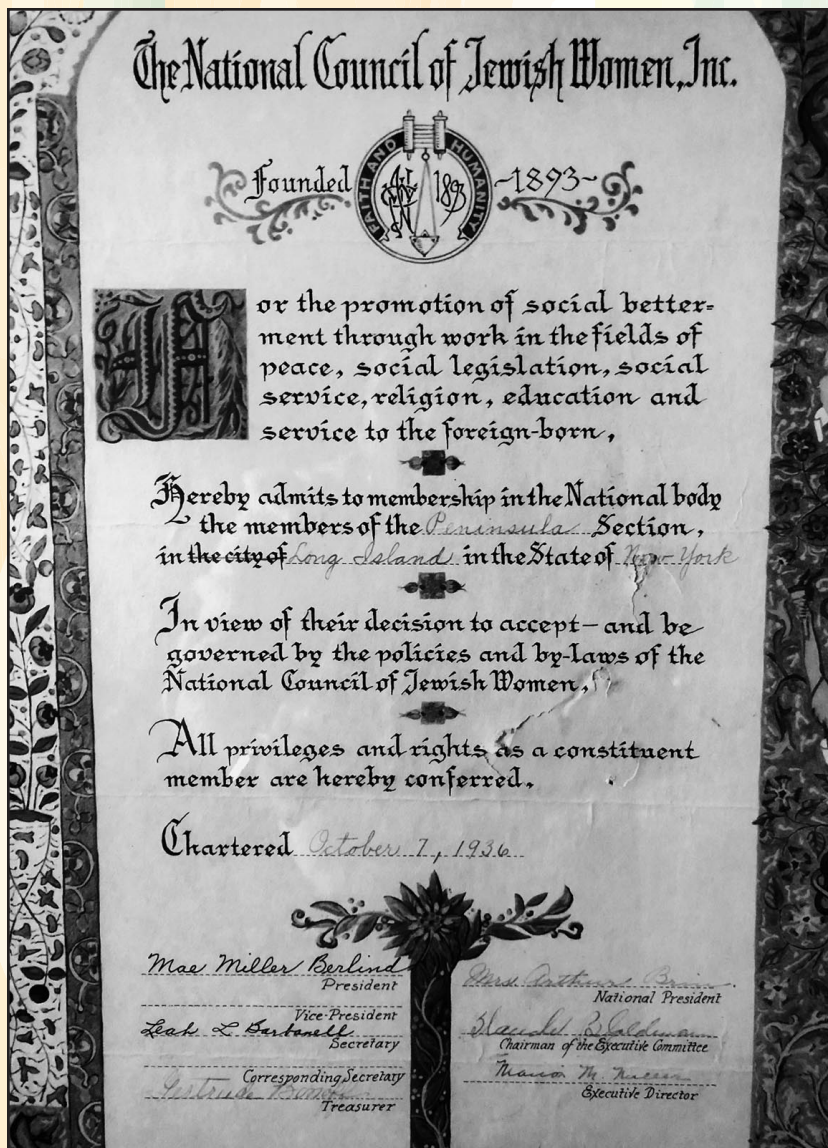 The National Council of Jewish Women, Inc.
FAITH AND HUMANITY
Founded 1893 1893
For the promotion of social better-
ment through work in the fields of
peace, social legislation, social
service, religion, education and
service to the foreign-born,
Hereby admits to membership in the National body
the members of the Peninsula Section,
in the city of Long Island in the State of New York
In view of their decision to accept — and be
governed by the policies and by-laws of the
National Council of Jewish Women,
All privileges and rights as a constituent
member are hereby conferred.
Chartered October 7, 1936
Mae Miller Berlind
President
Vice-President
Leah L Barbanell
Secretary
Corresponding Secretary
Gertrude
Treasurer
Mrs Arthur Brin
National President
Chairman of the Executive Committee
Marion M.
Executive Director